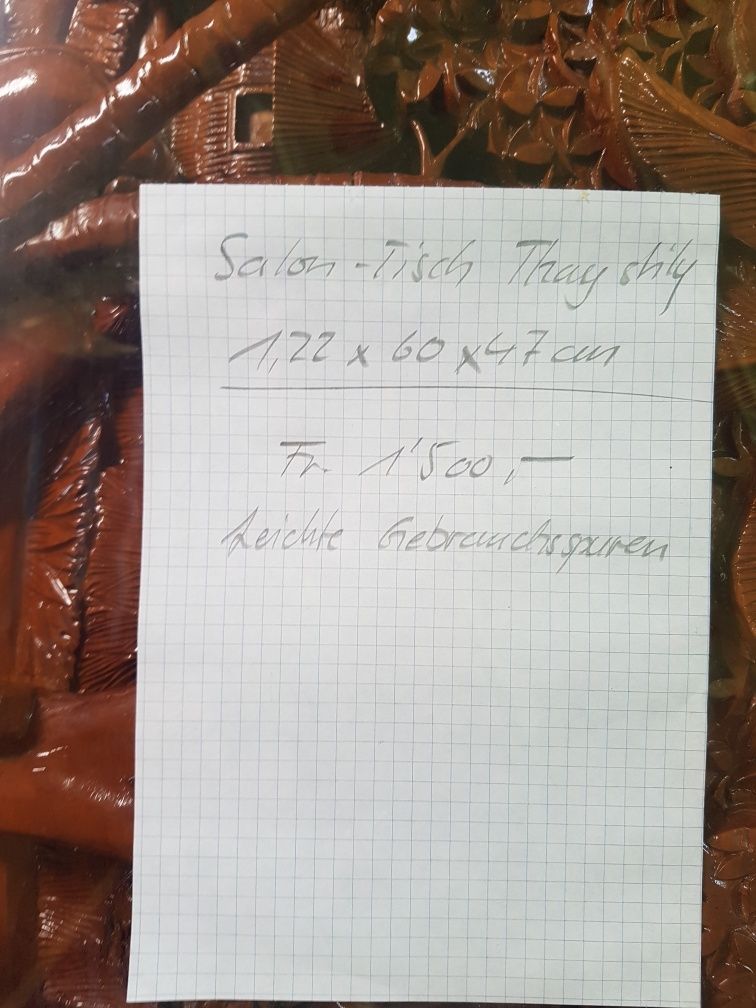 Salon-Tisch Thay stily
1,22 x 60 x 47 cm
Fr. 1'500,—
Leichte Gebrauchsspuren